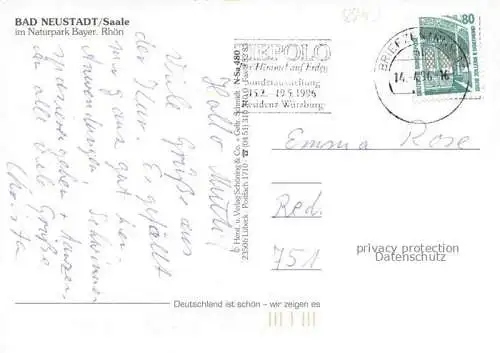 BAD NEUSTADT/Saale
im Naturpark Bayer. Rhön
Hallo Mutti!
Viele Grüße aus
der Kur. Es gefällt
mir ganz gut hier.
Anwendungen, Schwimmen
spazierengehen + tanzen.
An alle viele Grüße
Christa
© Horst u. Verlag Schöning & Co. + Gebr. Schmidt
23506 Lübeck · Postfach 1710
N-Sa 480
TIEPOLO
Himmel auf Erden
Sonderausstellung
15.2. - 19.5.1996
Residenz Würzburg
BRIEFZENTRUM
80
Emma Rose
Red.
751
privacy protection
Datenschutz
Deutschland ist schön – wir zeigen es